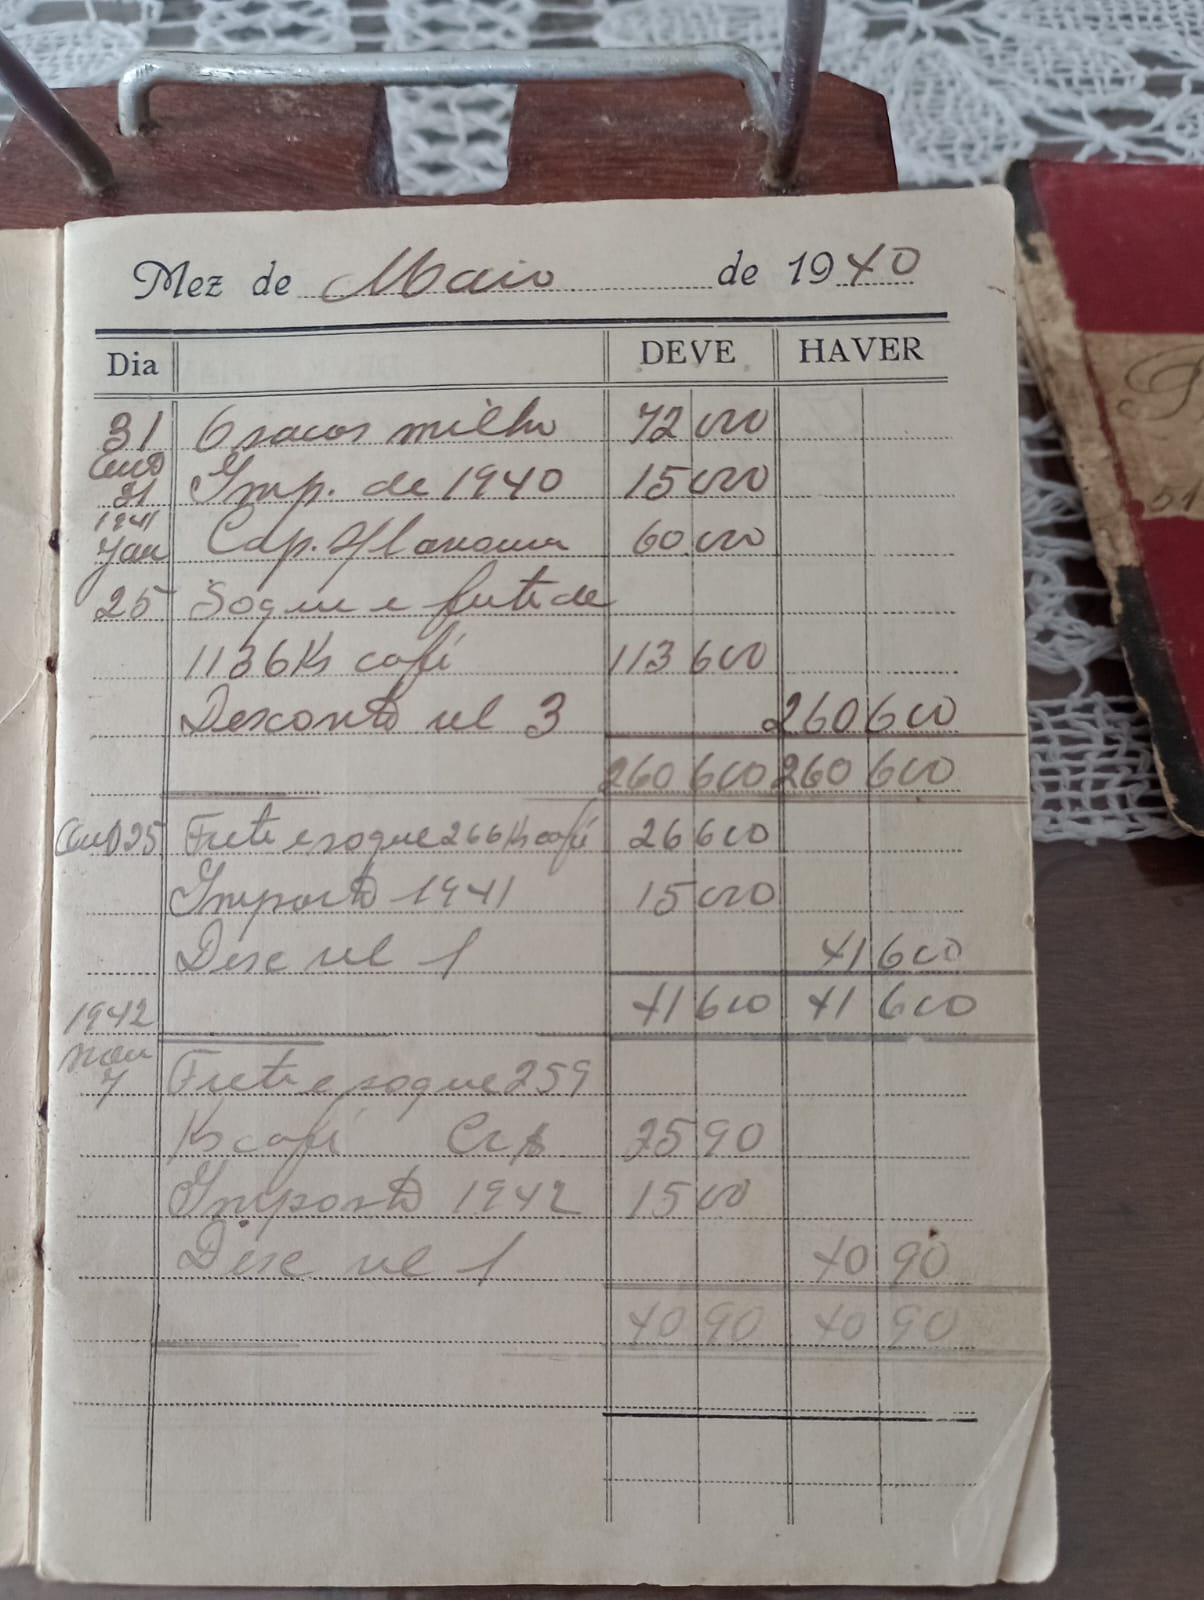 Mez de Maio de 1940
Dia DEVE HAVER
31 6 sacos milho 72 000
Out 31 Imp. de 1940 15 000
1941
Jan Cap. 60 000
25 Soque e frete de
1136 Ks café 113 600
Desconto vl 3 260 600
260 600 260 600
Out 25 Frete e soque 266 Ks café 26 600
Imposto 1941 15 000
Desc vl 1 41 600
41 600 41 600
1942
7 Frete e soque 259
Ks café Cr$ 25 90
Imposto 1942 15 00
Desc vl 1 40 90
40 90 40 90
51